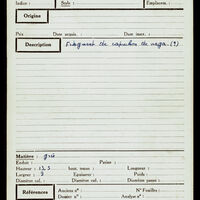 Indice : Sous : Emplacem. :
Origine
Prix Date acquis. : Date inscr. :
Description Fragment de capuchon de naga (?)
Matière : grès
Endroit : Patine :
Hauteur : 13,5 haut. tenon :
Largeur : 9 Epaisseur : Poids :
Diamètre col. : Diamètre panse :
Références Anciens n° : N° Fouilles :
Dossier n° : Analyse n° :